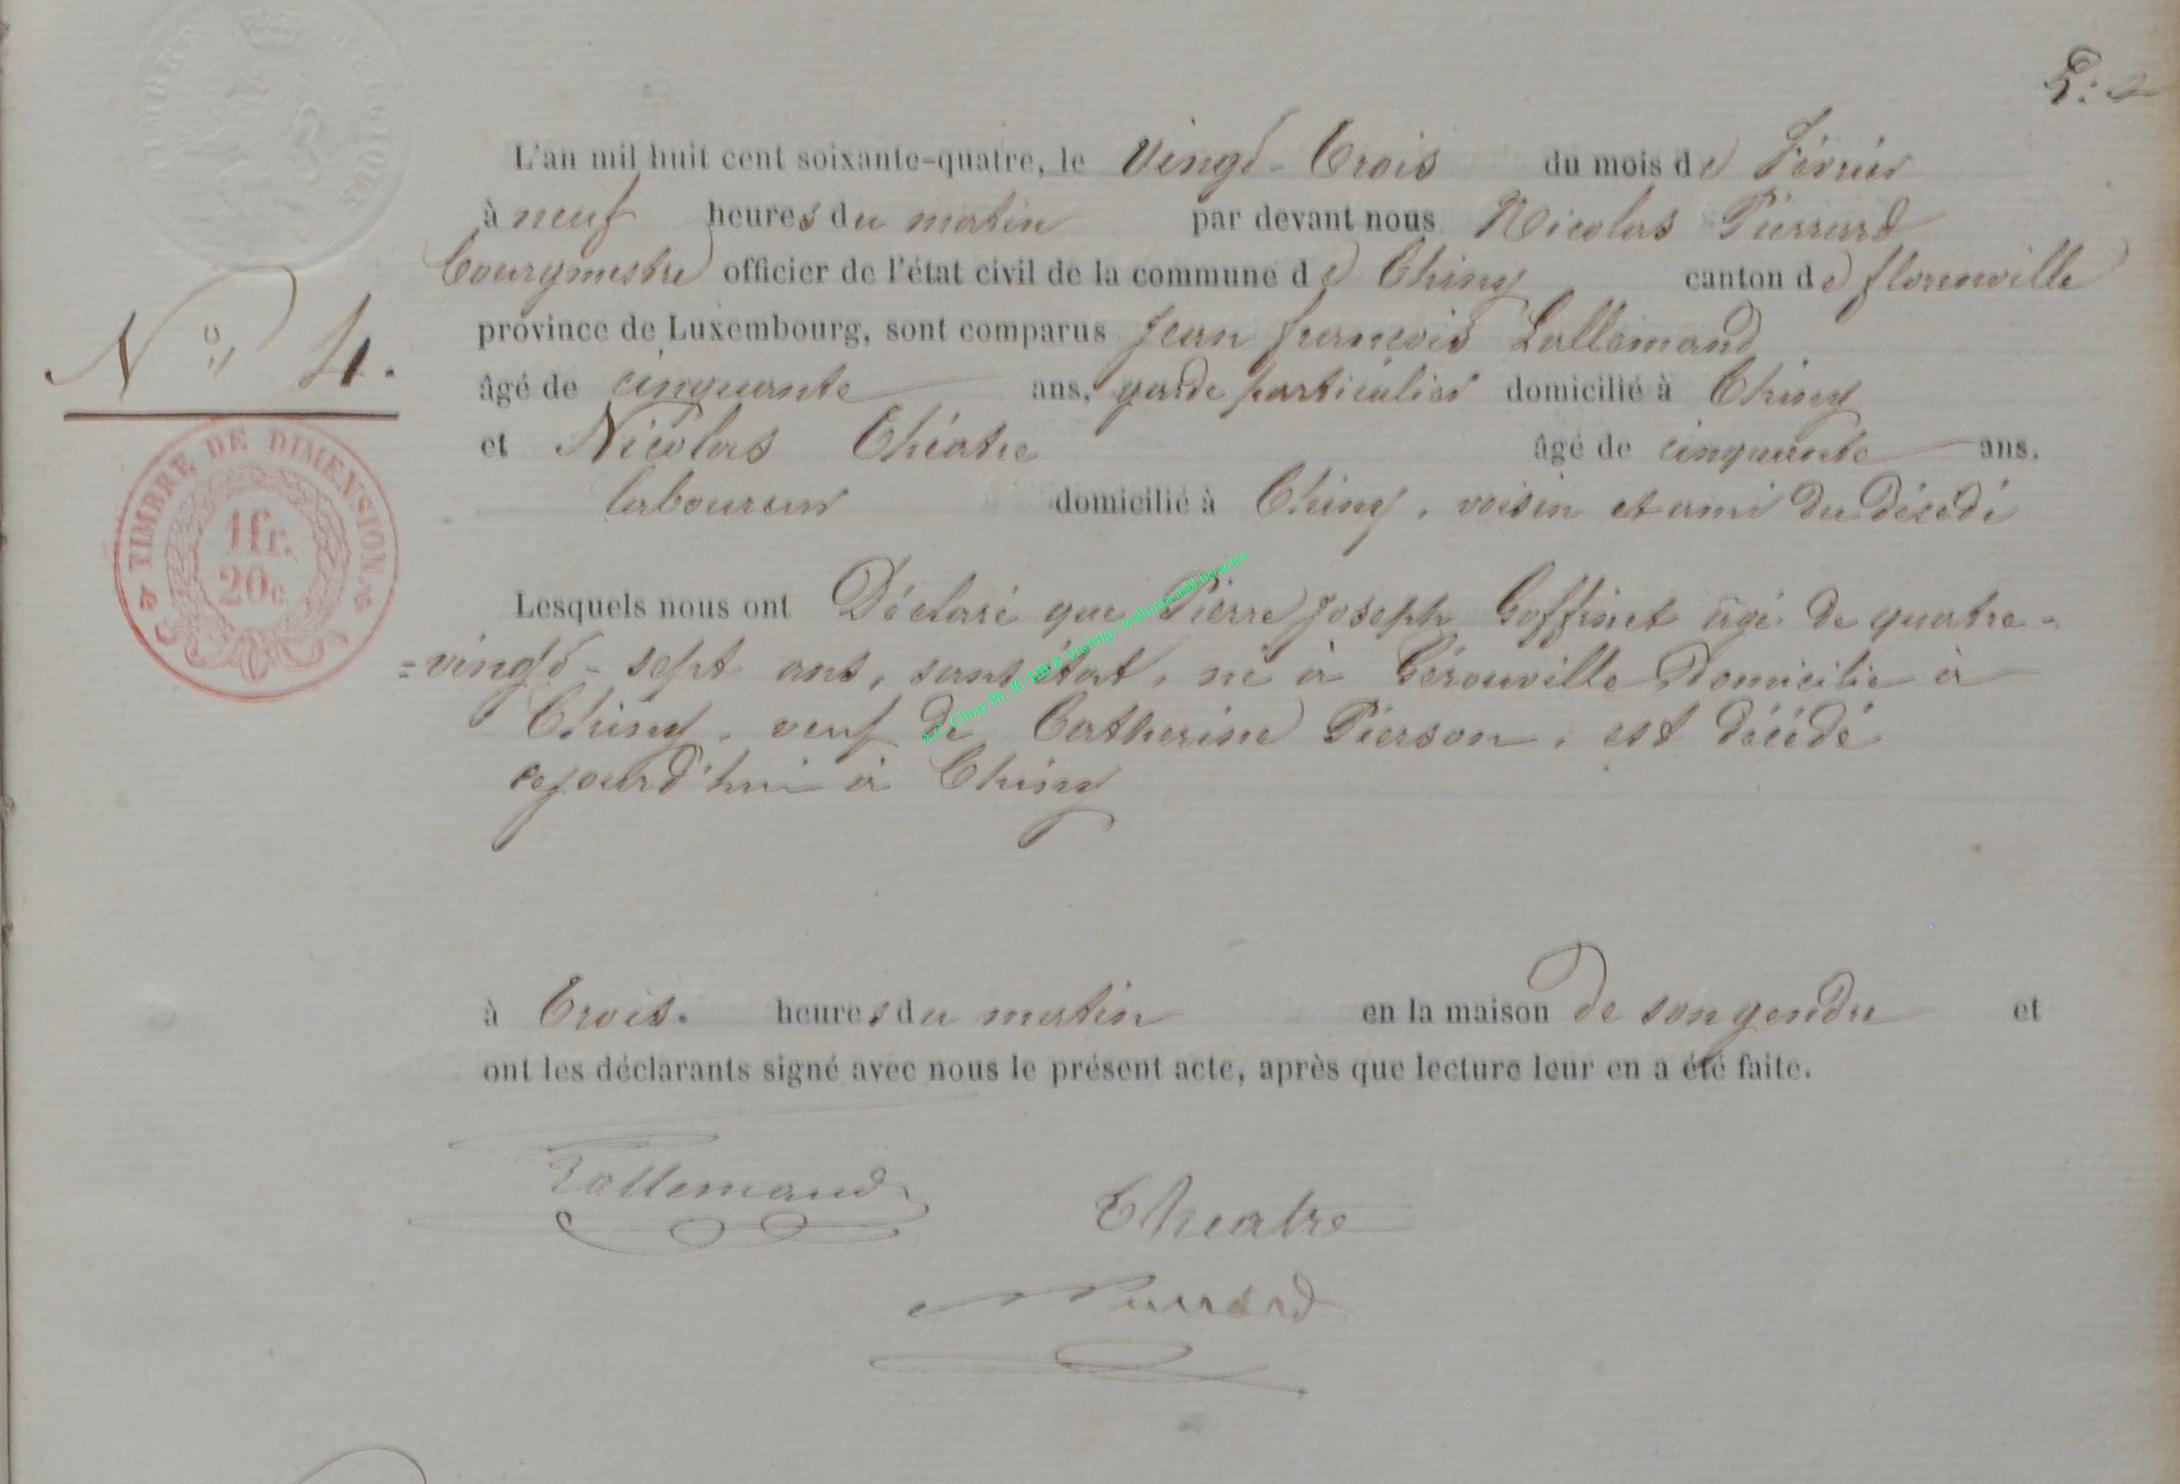 TIMBRE BELGIQUE
L'an mil huit cent soixante-quatre, le vingt-trois du mois de Février
à neuf heures du matin par devant nous Nicolas Pierrard
bourgmestre officier de l'état civil de la commune de Chiny canton de florenville
province de Luxembourg, sont comparus Jean françois Lallemand
âgé de cinquante ans, garde particulier domicilié à Chiny
et Nicolas Théatre âgé de cinquante ans.
laboureur domicilié à Chiny, voisin et ami du décédé
N° 4.
TIMBRE DE DIMENSION
1fr.
20c.
Lesquels nous ont Déclaré que Pierre Joseph Goffinet âgé de quatre-
=vingt-sept ans, sans état, né à Gérouville domicilié à
Chiny, veuf de Catherine Pierson, est décédé
cejourd'hui à Chiny
à trois. heures du matin en la maison de son gendre et
ont les déclarants signé avec nous le présent acte, après que lecture leur en a été faite.
Lallemand
Theatre
Pierrard